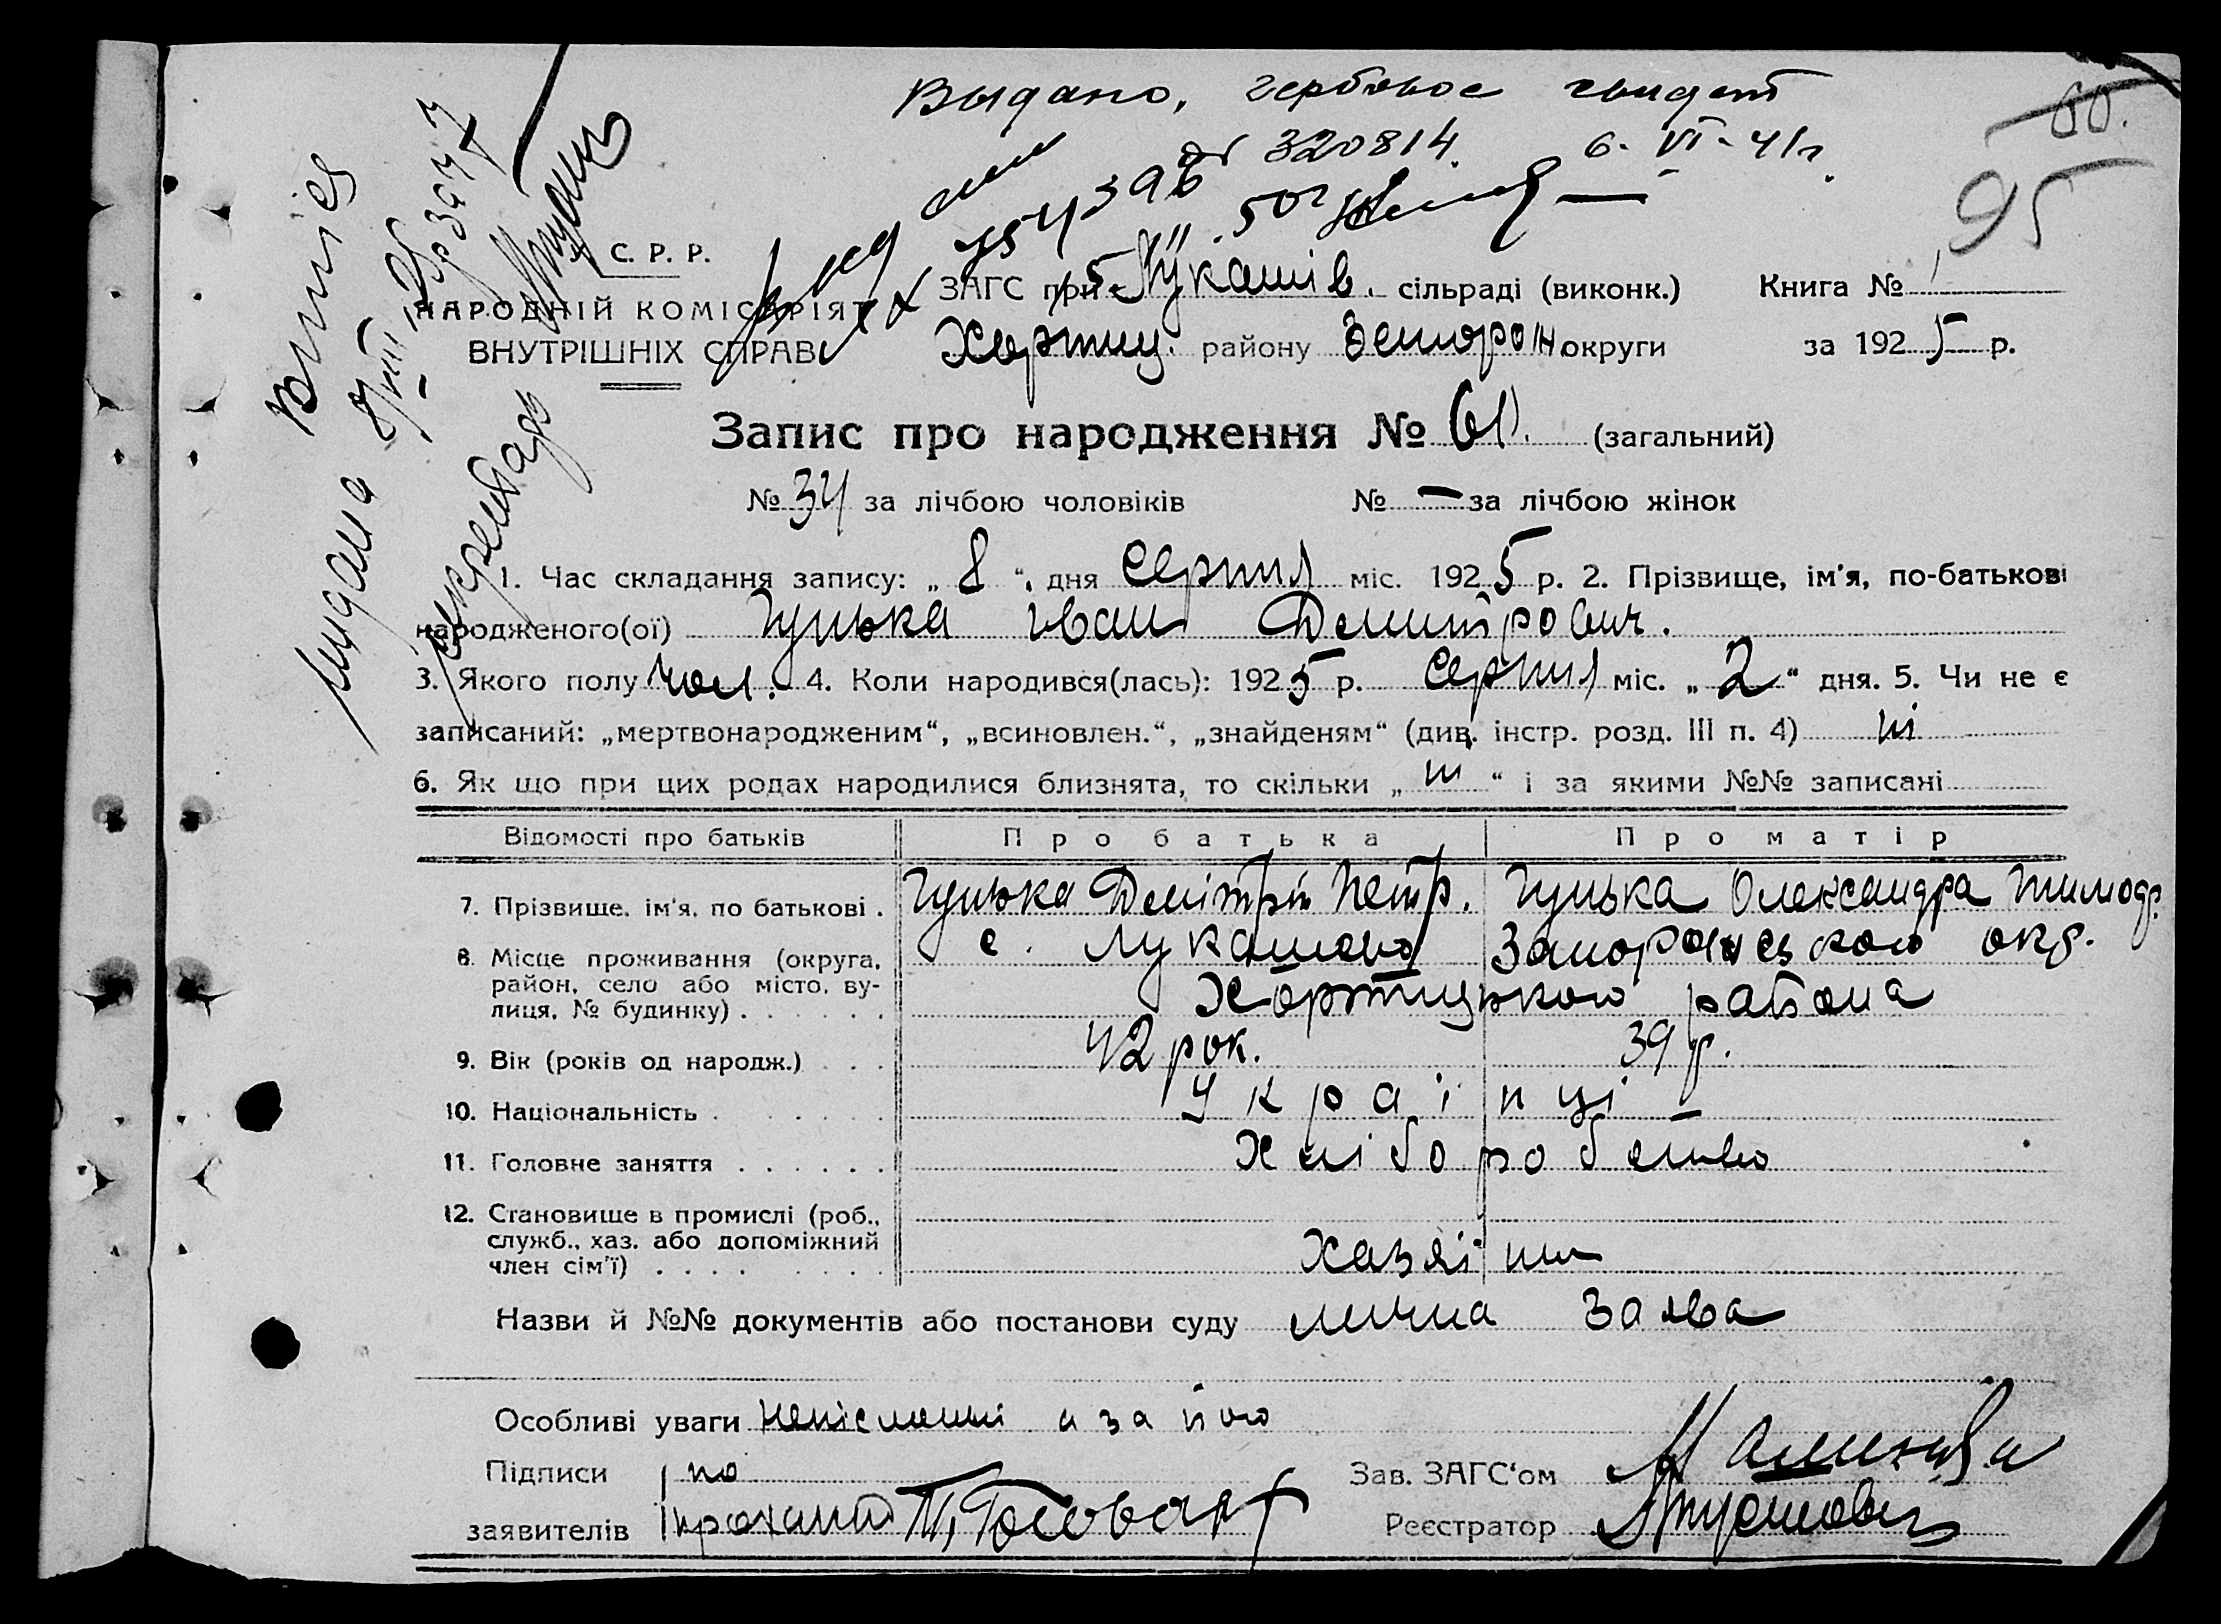 Выдано, гербовое свидет
320814. 6-VI-41г.
60.
95
С. Р. Р.
НАРОДНІЙ КОМІСАРІЯТ
ВНУТРІШНІХ СПРАВ
ЗАГС при Лукашів. сільраді (виконк.) Книга №
Хортиц. району Запорож. округи за 1925 р.
Запис про народження № 61. (загальний)
№ 34 за лічбою чоловіків № — за лічбою жінок
1. Час складання запису: „ 8 “ дня Серпня міс. 1925 р. 2. Прізвище, ім'я, по-батькові
народженого(ої) Гунька Іван Дмитрович.
3. Якого полу чол. 4. Коли народився(лась): 1925 р. Серпня міс. „ 2 “ дня. 5. Чи не є
записаний: „мертвонародженим“, „всиновлен.“, „знайденям“ (див. інстр. розд. III п. 4) ні
6. Як що при цих родах народилися близнята, то скільки „ ні “ і за якими №№ записані
Відомості про батьків Про батька Про матір
7. Прізвище, ім'я, по батькові . Гунька Дмітрій Петр. Гунька Олександра Тимоф.
8. Місце проживання (округа, с. Лукашово Запорожського окр.
район, село або місто, ву- Хортицького района
лиця, № будинку) . . . . . .
9. Вік (років од народж.) . . . 42 рок. 39 р.
10. Національність . . . . . Українці
11. Головне заняття . . . . . . Хліборобство
12. Становище в промислі (роб.,
служб., хаз. або допоміжний
член сім'ї) . . . . . . . . Хазяїни
Назви й №№ документів або постанови суду лична заява
Особливі уваги неписьменні а за його
Підписи по Зав. ЗАГС'ом
заявителів проханню Реєстратор
Видана
секретарь